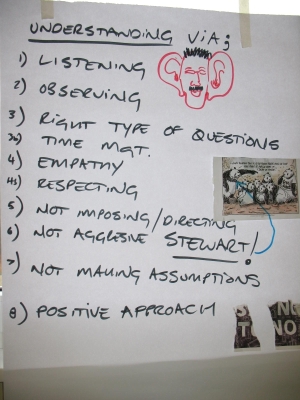 UNDERSTANDING VIA;
1) LISTENING
2) OBSERVING
3) RIGHT TYPE OF QUESTIONS
TIME MGT.
4) EMPATHY
RESPECTING
5) NOT IMPOSING/DIRECTING
6) NOT AGGRESIVE STEWART!
7) NOT MAKING ASSUMPTIONS
8) POSITIVE APPROACH